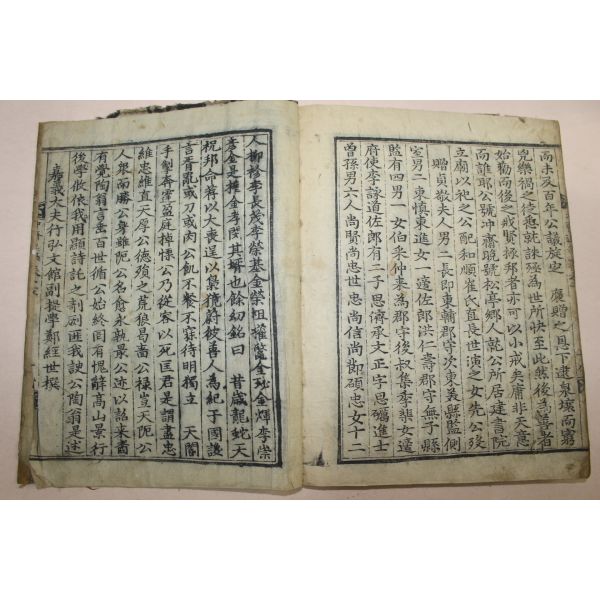 而未及百年公議旋定 廕贈之恩下逮泉壤而窮
兇樂禍之徒惡就誅殛爲世所快至此然後爲善者
始勸而後之戕賢拯邦者亦可以小戒矣庸非天意
而誰耶公號冲齋晩號松亭鄕人就公所居建書院
立廟以祀之公配和順崔氏直長世演之女先公沒
贈貞敬夫人男二長卽東輔郡守次東美縣監側
室男二東愼東進女一適佐郎洪仁壽郡守無子縣
監有四男一女伯采仲來爲郡守後叔集季棐女適
府使李詠道佐郎有二子思濟承文正字思礪進士
曾孫男六人尚賢尚忠世忠尚信尚節碩忠女十二
人柳襂李長茂李榮基金榮祖權
李金是權金孝閔其壻也餘幼銘曰 昔歲龍蛇天
祝邦命蔣以大喪逞以梟獍蔚彼善人爲紀于國讜
言晉亂或刃或肉公飢不飧夜不寐待明獨立 天閽
手掣奔霆盈庭掉慄公乃從容以死匡君是謂盡忠
維忠維直天厚公德殞之荒狼曷嗇公祿豈天阨公
人衆而勝公身雖阨公名愈永孰最公迹以詔來書
有覺陶翁言垂百世循公始終罔有愧辭高山景行
後學攸依我用顯詩託之剞劂匪我諛公陶翁是述
嘉義大夫行弘文館副提學鄭經世撰